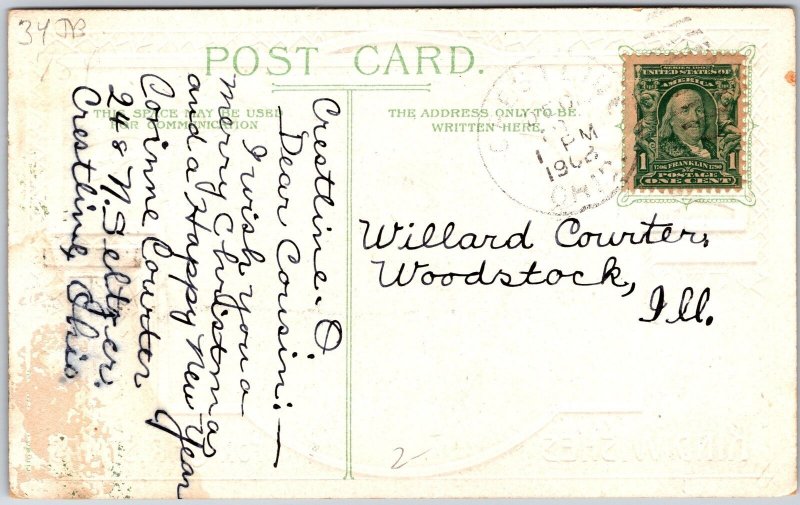 34
POST CARD.
THIS SPACE MAY BE USED
FOR COMMUNICATION
THE ADDRESS ONLY TO BE
WRITTEN HERE.
Crestline. O
Dear Cousin:—
I wish you a
merry Christmas
and a Happy New Year
Corinne Courter
248 N. Seltzer.
Crestline, Ohio.
1 PM
1908
OHIO
SERIES 1902
UNITED STATES OF
AMERICA
1706 FRANKLIN 1790
1 POSTAGE 1
ONE CENT
Willard Courter,
Woodstock,
Ill.
2-